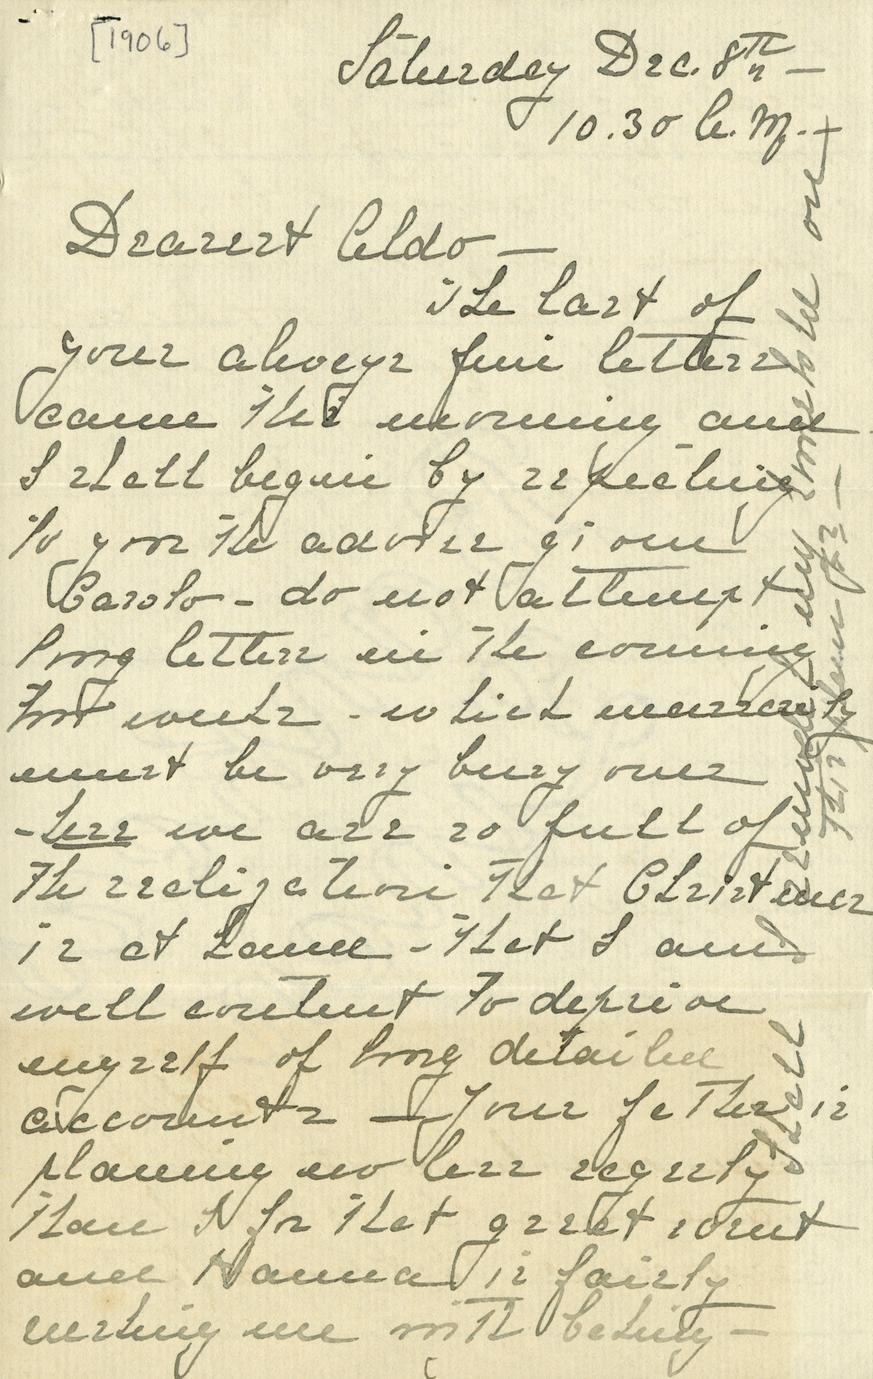 [1906]
Saturday Dec. 8th —
10.30 A.M. —
Dearest Aldo —
The last of
your always fine letters
came this morning and
I shall begin by repeating
to you the advice given
Carolo - do not attempt
long letters in the coming
two weeks - which
must be very busy ones
- here we are so full of
the realization that Christmas
is at hand - that I am
well content to deprive
myself of long detailed
accounts — Your father is
planning no less eagerly
than I for that great event
and Hanna is fairly
rushing me with baking —
Shall my
this